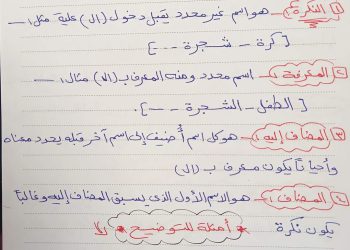 ١ النكرة :- هو اسم غير محدد يقبل دخول (ال) عليه مثل :-
[ كرة - شجرة --- ]
٢ المعرفة :- اسم محدد ومنه المعرف بـ (ال) مثال :-
[ الطفل - الشجرة --- ].
٣ المضاف إليه :- هو كل اسم أُضيف إلى اسم آخر قبله يحدد معناه
وأحياناً يكون معرف بـ (ال)
٤ المضاف :- هو الاسم الأول الذي يسبق المضاف إليه وغالباً
يكون نكرة * أمثلة للتوضيح *